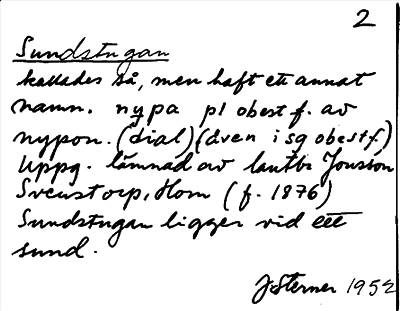 2
Sundstugan
kallades så, men haft ett annat
namn. nypa pl obest f. av
nypon. (dial) (även i sg obest f.)
Uppg. lämnad av lantbr Jonsson
Svenstorp, Horn (f. 1876)
Sundstugan ligger vid ett
sund.
J. Sterner 1952